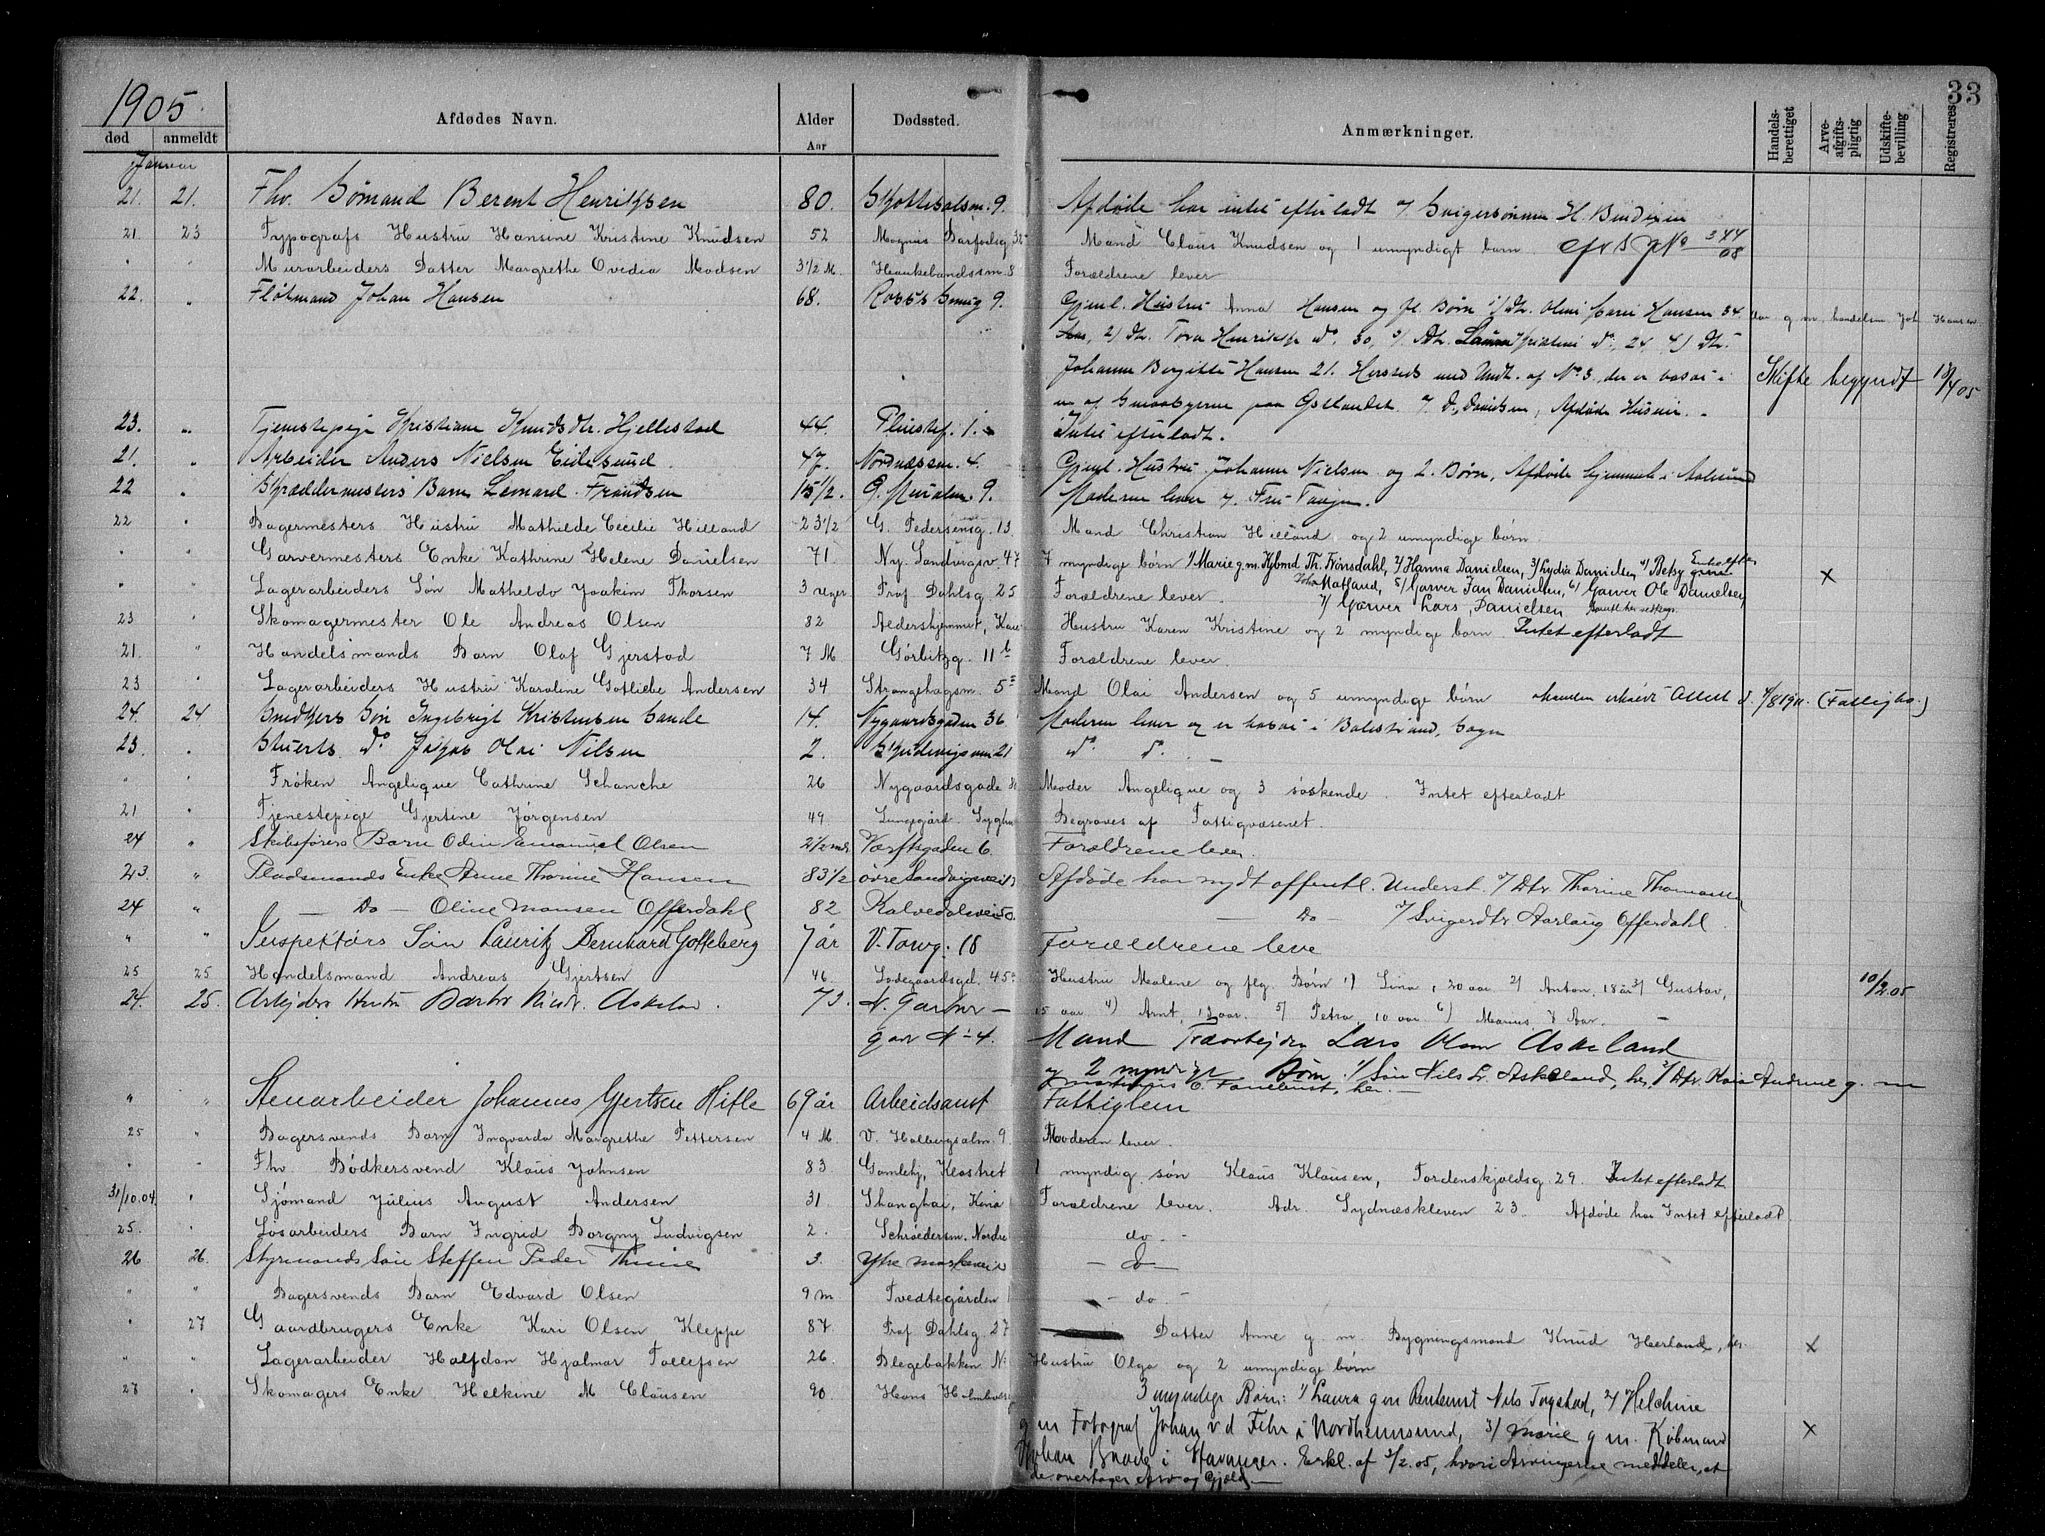 33
1905.
død anmeldt Afdødes Navn. Alder Aar Dødssted. Anmærkninger. Handelsberettiget Arveafgiftspligtig Udskiftebevilling Registreres
Januar
21. 21. Fhv. Sømand Berent Henriksen 80. 9. Afdøde har intet efterladt Svigersønnen H.
21. 23 Typografs Hustru Hansine Kristine Knudsen 52 Magnus Barfodsg. Mand Claus Knudsen og 1 umyndigt barn 344/08
" " Murarbeiders Datter Margrethe Ovidia Madsen 3 1/2 M. Haukelandssm. 8 Forældrene lever
22. " Fløtmand Johan Hansen 68. 9. Gjenl. Hustru Anna Hansen og fl. Børn 1/ Dtr. Oline Hansen 34
Aar, 2/ Dtr. Tora do. 30, 3/ Dtr. Laura do. 24, 4/ Dtr.
Johanne Birgitte Hansen 21. med Undt. af No 3, der er bosat i Skifte begyndt 13/4 05
en af paa Østlandet.
23. " Tjenestepige Kristiane Knudsdtr. Hjellestad 44. 1. Intet efterladt.
21. " Arbeider Anders Nielsen Eidesund 47. Nordnæssm. 4. Gjenl. Hustru Johanne Nielsen og 2 Børn, Afdøde hjemmeh. i Aalesund
22 " Skræddermesters Barn Frandsen 15 1/2. 9. Moderen lever
22 " Bagermesters Hustru Mathilde Cecilie Hilland 23 1/2 G. Pedersensg. 13 Mand Christian Hilland og 2 umyndige børn.
" " Garvermesters Enke Kathrine Helene Danielsen 71. Ny. Sandvigsv. 47 7 myndige børn 1/ Marie g.m. Kjbmd Th. Frønsdahl, 2/ Hanna Danielsen, 3/ Lydia Danielsen 4/ Betsy Enke efter
" " Lagerarbeiders Søn Matheldo Joakim Thorsen 3 uger Prof Dahlsg. 25 Forældrene lever. Matland, 5/ Garver Jan Danielsen, 6/ Garver Ole Danielsen, x
7/ Garver Lars Danielsen
23 " Skomagermester Ole Andreas Olsen 82 Aldershjemmet, Hustru Karen Kristine og 2 myndige børn Intet efterladt
21. " Handelsmands Barn Olaf Gjerstad 7 M Gørbitzg. 11 b Forældrene lever.
23 " Lagerarbeiders Hustru Karoline Gotliebe Andersen 34 Strangehagsm. 5 Mand Olai Andersen og 5 umyndige børn Manden erholdt Attest d. /8 1911. (Fattigbo.)
24. 24 Snedkers Søn Ingebrigt Kristensen Sande 14. Nygaardsgaden 36 Moderen lever og er bosat i Balestrand, Sogn
23. " Stuerts do Jakob Olai Nilsen 2. 21 do. do. —
" " Frøken Angelique Cathrine Schanche 26 Nygaardsgade Moder Angelique og 3 søskende. Intet efterladt
21 " Tjenestepige Gjertine Jørgensen 49. Lungegård Sygh Begraves af Fattigvæsenet.
24 " Skibsførers Barn Odin Emanuel Olsen 2 1/2 mdr Værftsgaden 6. Forældrene lever.
23. " Pladsmands Enke Anne Thorine Hansen 83 1/2 øvre Sandvigsvei Afdøde har nydt offentl. Underst. v/ Dtr Thorine Thomassen
24 " — Do — Oline Monsen Offerdahl 82 Kalvedalsvei — Do — v/ Svigerdtr Aarlaug Offerdahl
" " Inspektørs Søn Lauritz Bernhard Gotteberg 7 år V. Torvg. 18 Forældrene leve
25 25 Handelsmand Andreas Gjertsen 46 Ladegaardsgd. 45 Hustru Malene og flg. Børn 1) Lina, 20 aar 2) Anton, 18 år 3) Gustav, 10/2 05
15 aar 4) Arnt, 12 aar. 5) Petra, 10 aar 6) Marius, 7 Aar. —
24. 25. Arbejders Hustru Askeland 73. N. Gartner—
gad No 4. Mand Træarbejder Lars Olsen Askeland
og 2 myndige Børn 1/ Søn Nils L. Askeland, her, 2/ Dtr. Kaia Andrine g. m
" " Stenarbeider Johannes Gjertsen Hitle 69 år Arbeidsanst Fattiglem
25 " Bagersvends Barn Ingvarda Margrethe Pettersen 4 M. V. Holbergsalm. 9 Moderen lever.
" " Fhv Bødkersvend Klaus Johnsen 83 Gamlehj, Klostret 1 myndig søn Klaus Klausen, Tordenskjoldsg. 29. Intet efterladt
31/10.04. " Sjømand Julius August Andersen 31. Shanghai, Kina Forældrene lever. Adr. Sydnæskleven 23. Afdøde har Intet efterladt.
25. " Løsarbeiders Barn Ingrid Borgny Ludvigsen 2. Schrødersm. Nordre do. -
26 26. Styrmands Søn Steffen Peder 3. Ytre — do —
" " Bagersvends Barn Edvard Olsen 9 m Tvedtegården - do. -
" 27 Gaardbrugers Enke Kari Olsen Kleppe 87 Prof Dahlsg. 27 Datter Anne g. m. Bygningsmand Knud Herland, her. x
" " Lagerarbeider Halfdan Hjalmar Tollefsen 26. Blegebakken No Hustru Olga og 2 umyndige børn
27 " Skomagers Enke Helkine M Clausen 90 Hans 3 myndige Børn: 1/ Laura g m Nils Togstad, 2/ Helchine
g m Fotograf Johan v d Fehr i Nordheimsund, 3/ Marie g m. Købmand x
Johan i Stavanger. Erkl. af 3/2.05, hvori Arvingerne meddeler, at
de overtager Arv og Gjæld —